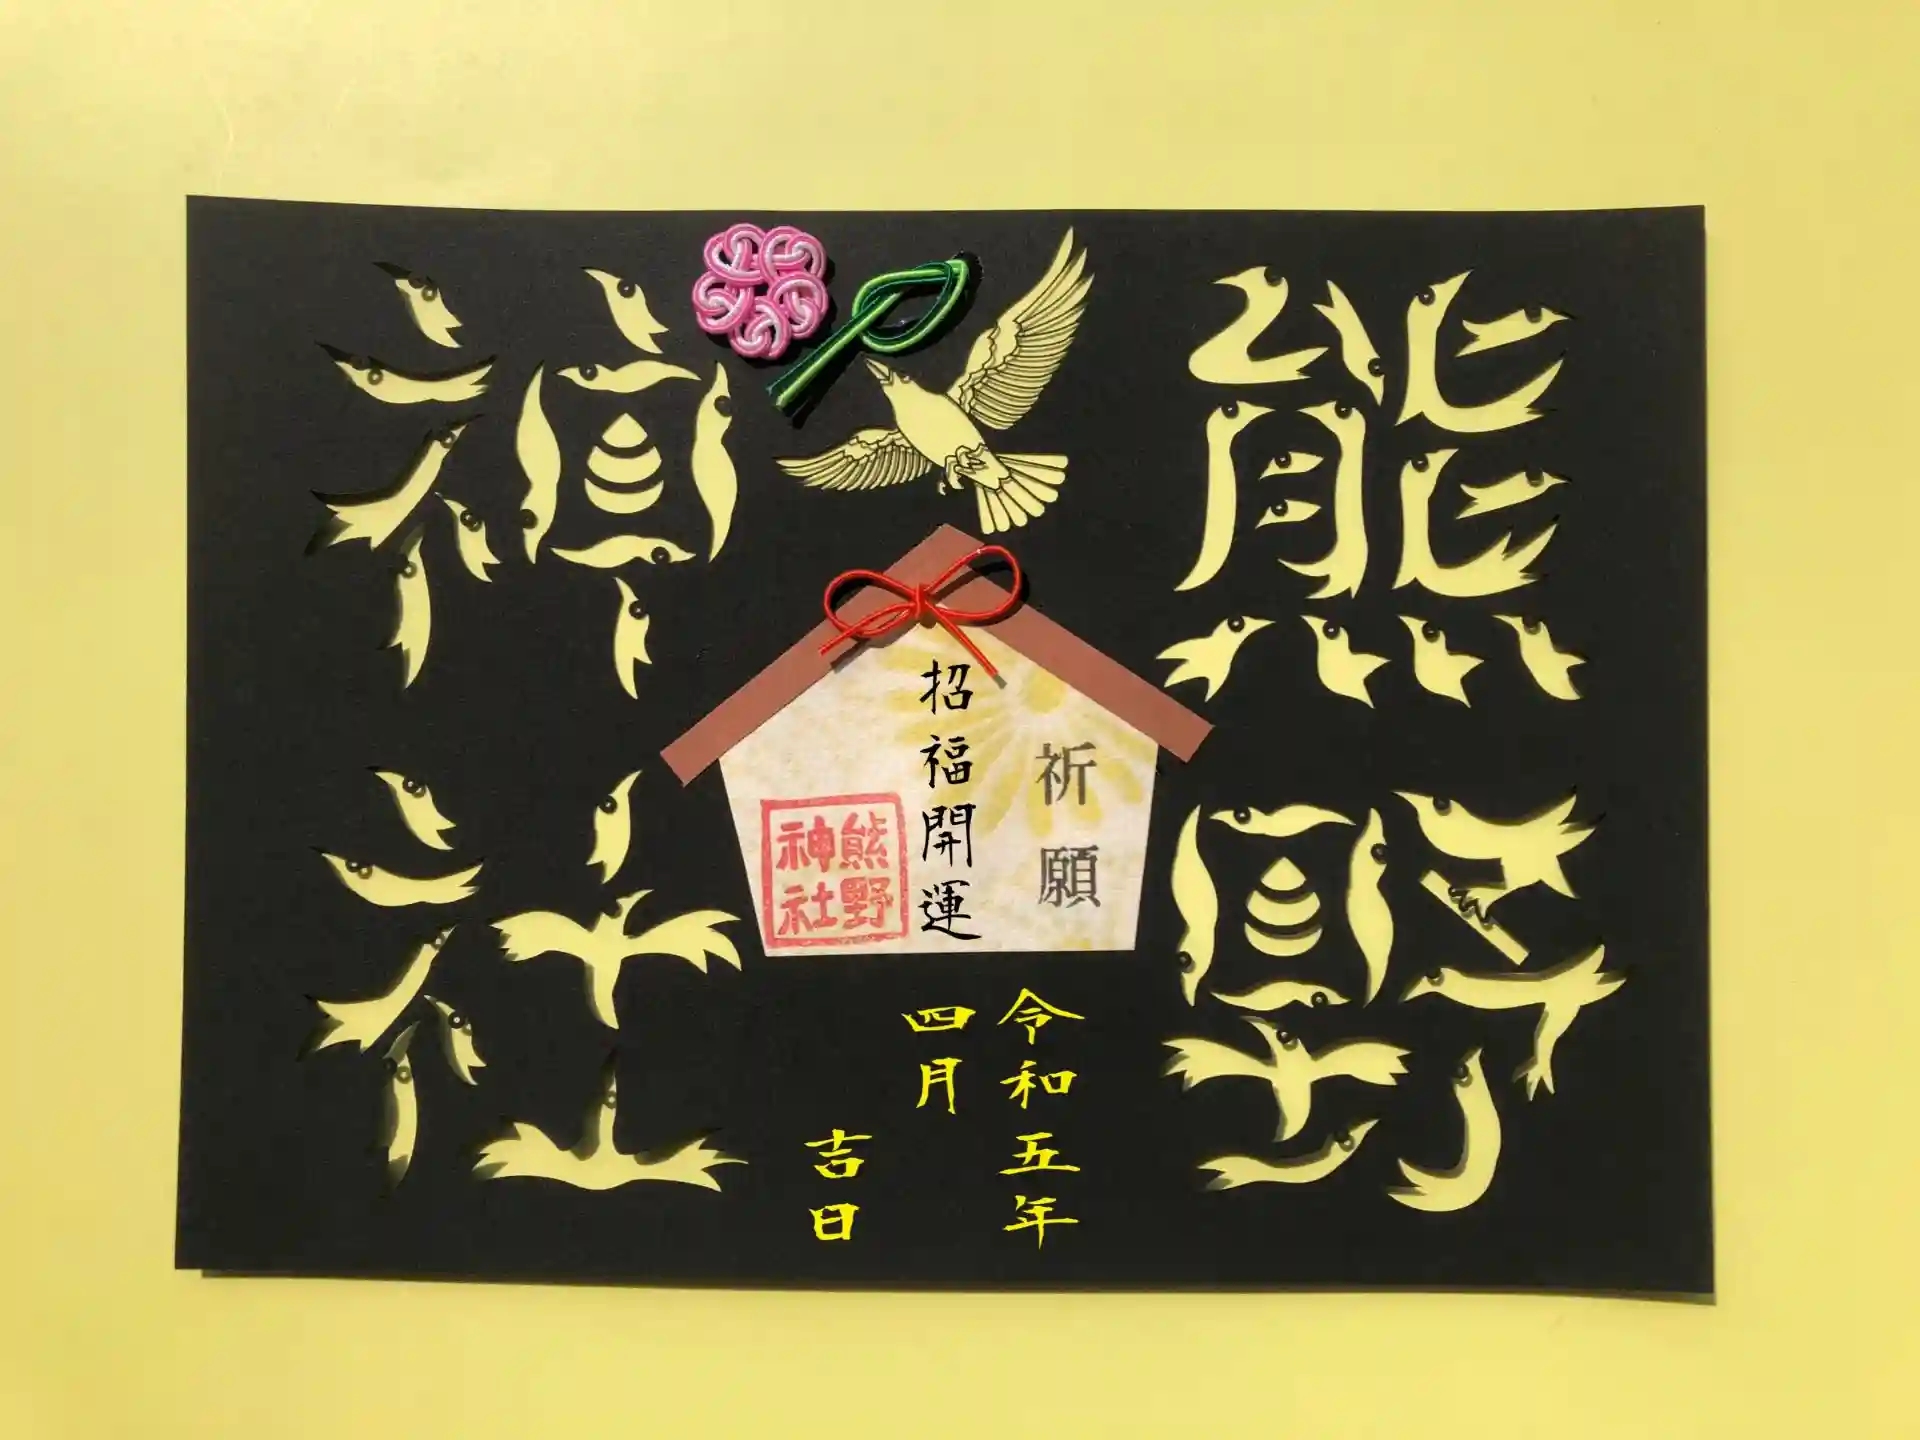 熊野
神社
祈願
招福開運
熊野
神社
令和五年
四月
吉日